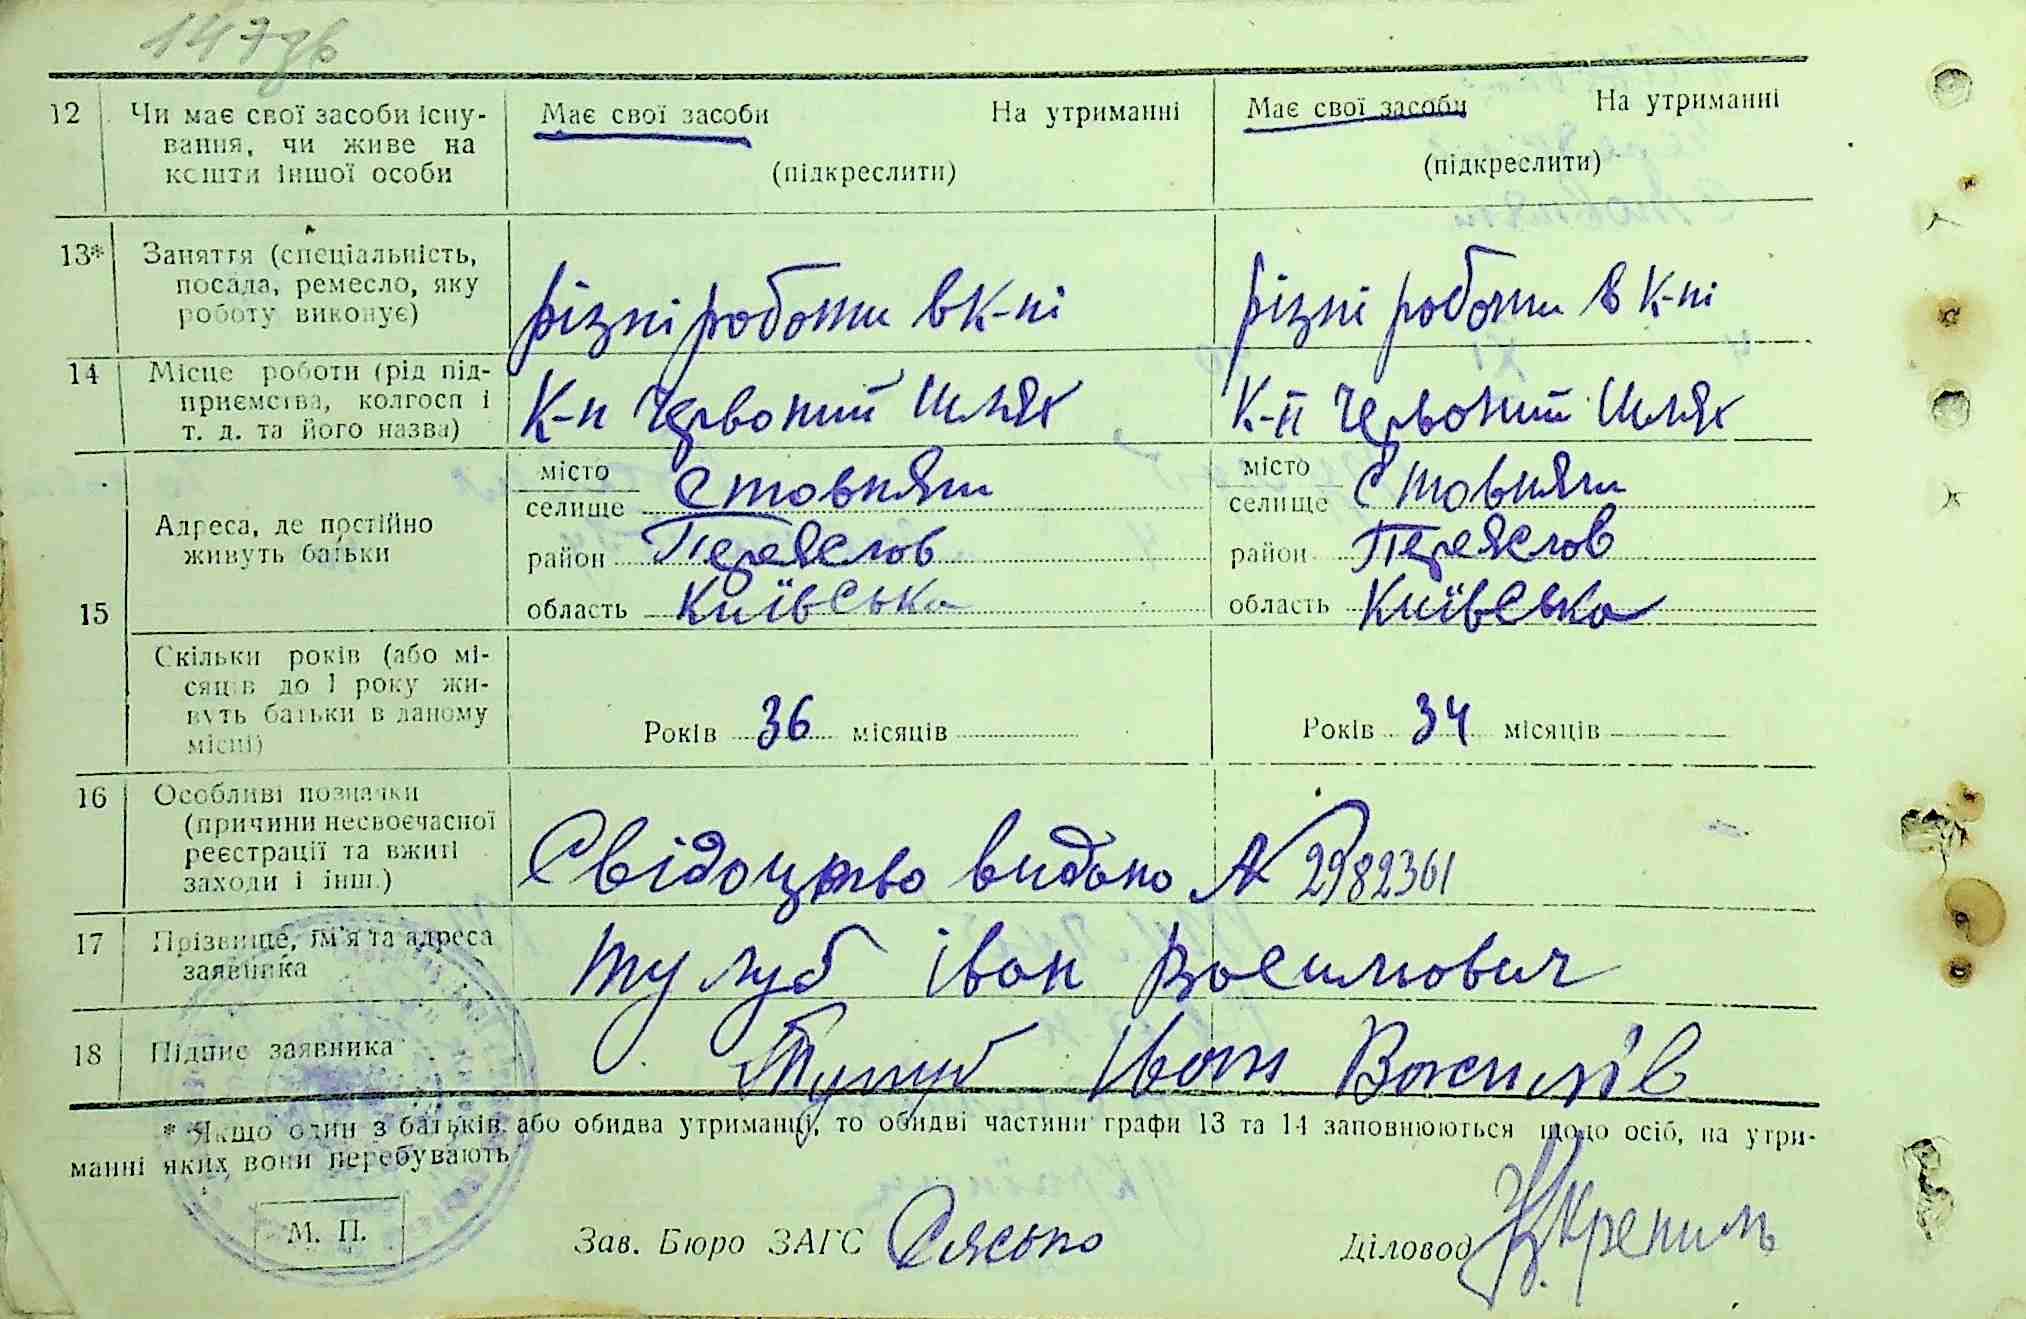 147дв
12 Чи має свої засоби існу- Має свої засоби На утриманні Має свої засоби На утриманні
вання, чи живе на
кошти іншої особи (підкреслити) (підкреслити)
13* Заняття (спеціальність,
посада, ремесло, яку різні роботи в к-пі різні роботи в к-пі
роботу виконує)
14 Місце роботи (рід під-
приємства, колгосп і К-п Червоний Шлях К-п Червоний Шлях
т. д. та його назва)
15 Адреса, де постійно живуть батьки
місто селище Стовпяги місто селище Стовпяги
район Переяслов район Переяслов
область Київська область Київська
Скільки років (або мі-
сяців до 1 року жи-
вуть батьки в даному
місці)
Років 36 місяців Років 34 місяців
16 Особливі позначки
(причини несвоєчасної
реєстрації та вжиті
заходи і інш.)
Свідоцтво видано № 2982361
17 Прізвище, ім'я та адреса
заявника
Тулуб Іван Васильович
18 Підпис заявника Тулуб Іван Василів
* Якщо один з батьків або обидва утриманці, то обидві частини графи 13 та 14 заповнюються щодо осіб, на утри-
манні яких вони перебувають
М. П. Зав. Бюро ЗАГС Діловод